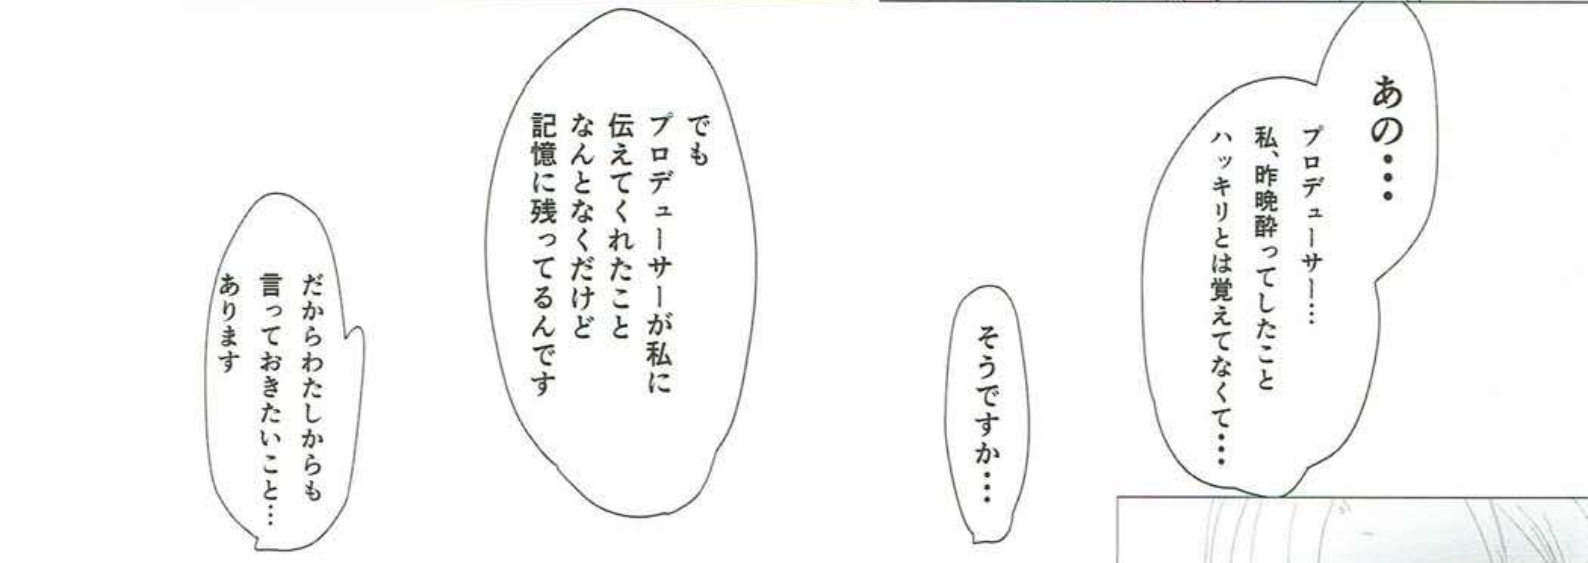 あの・・・
プロデューサー…
私、昨晩酔ってしたこと
ハッキリとは覚えてなくて・・・
そうですか・・・
でも
プロデューサーが私に
伝えてくれたこと
なんとなくだけど
記憶に残ってるんです
だからわたしからも
言っておきたいこと…
あります